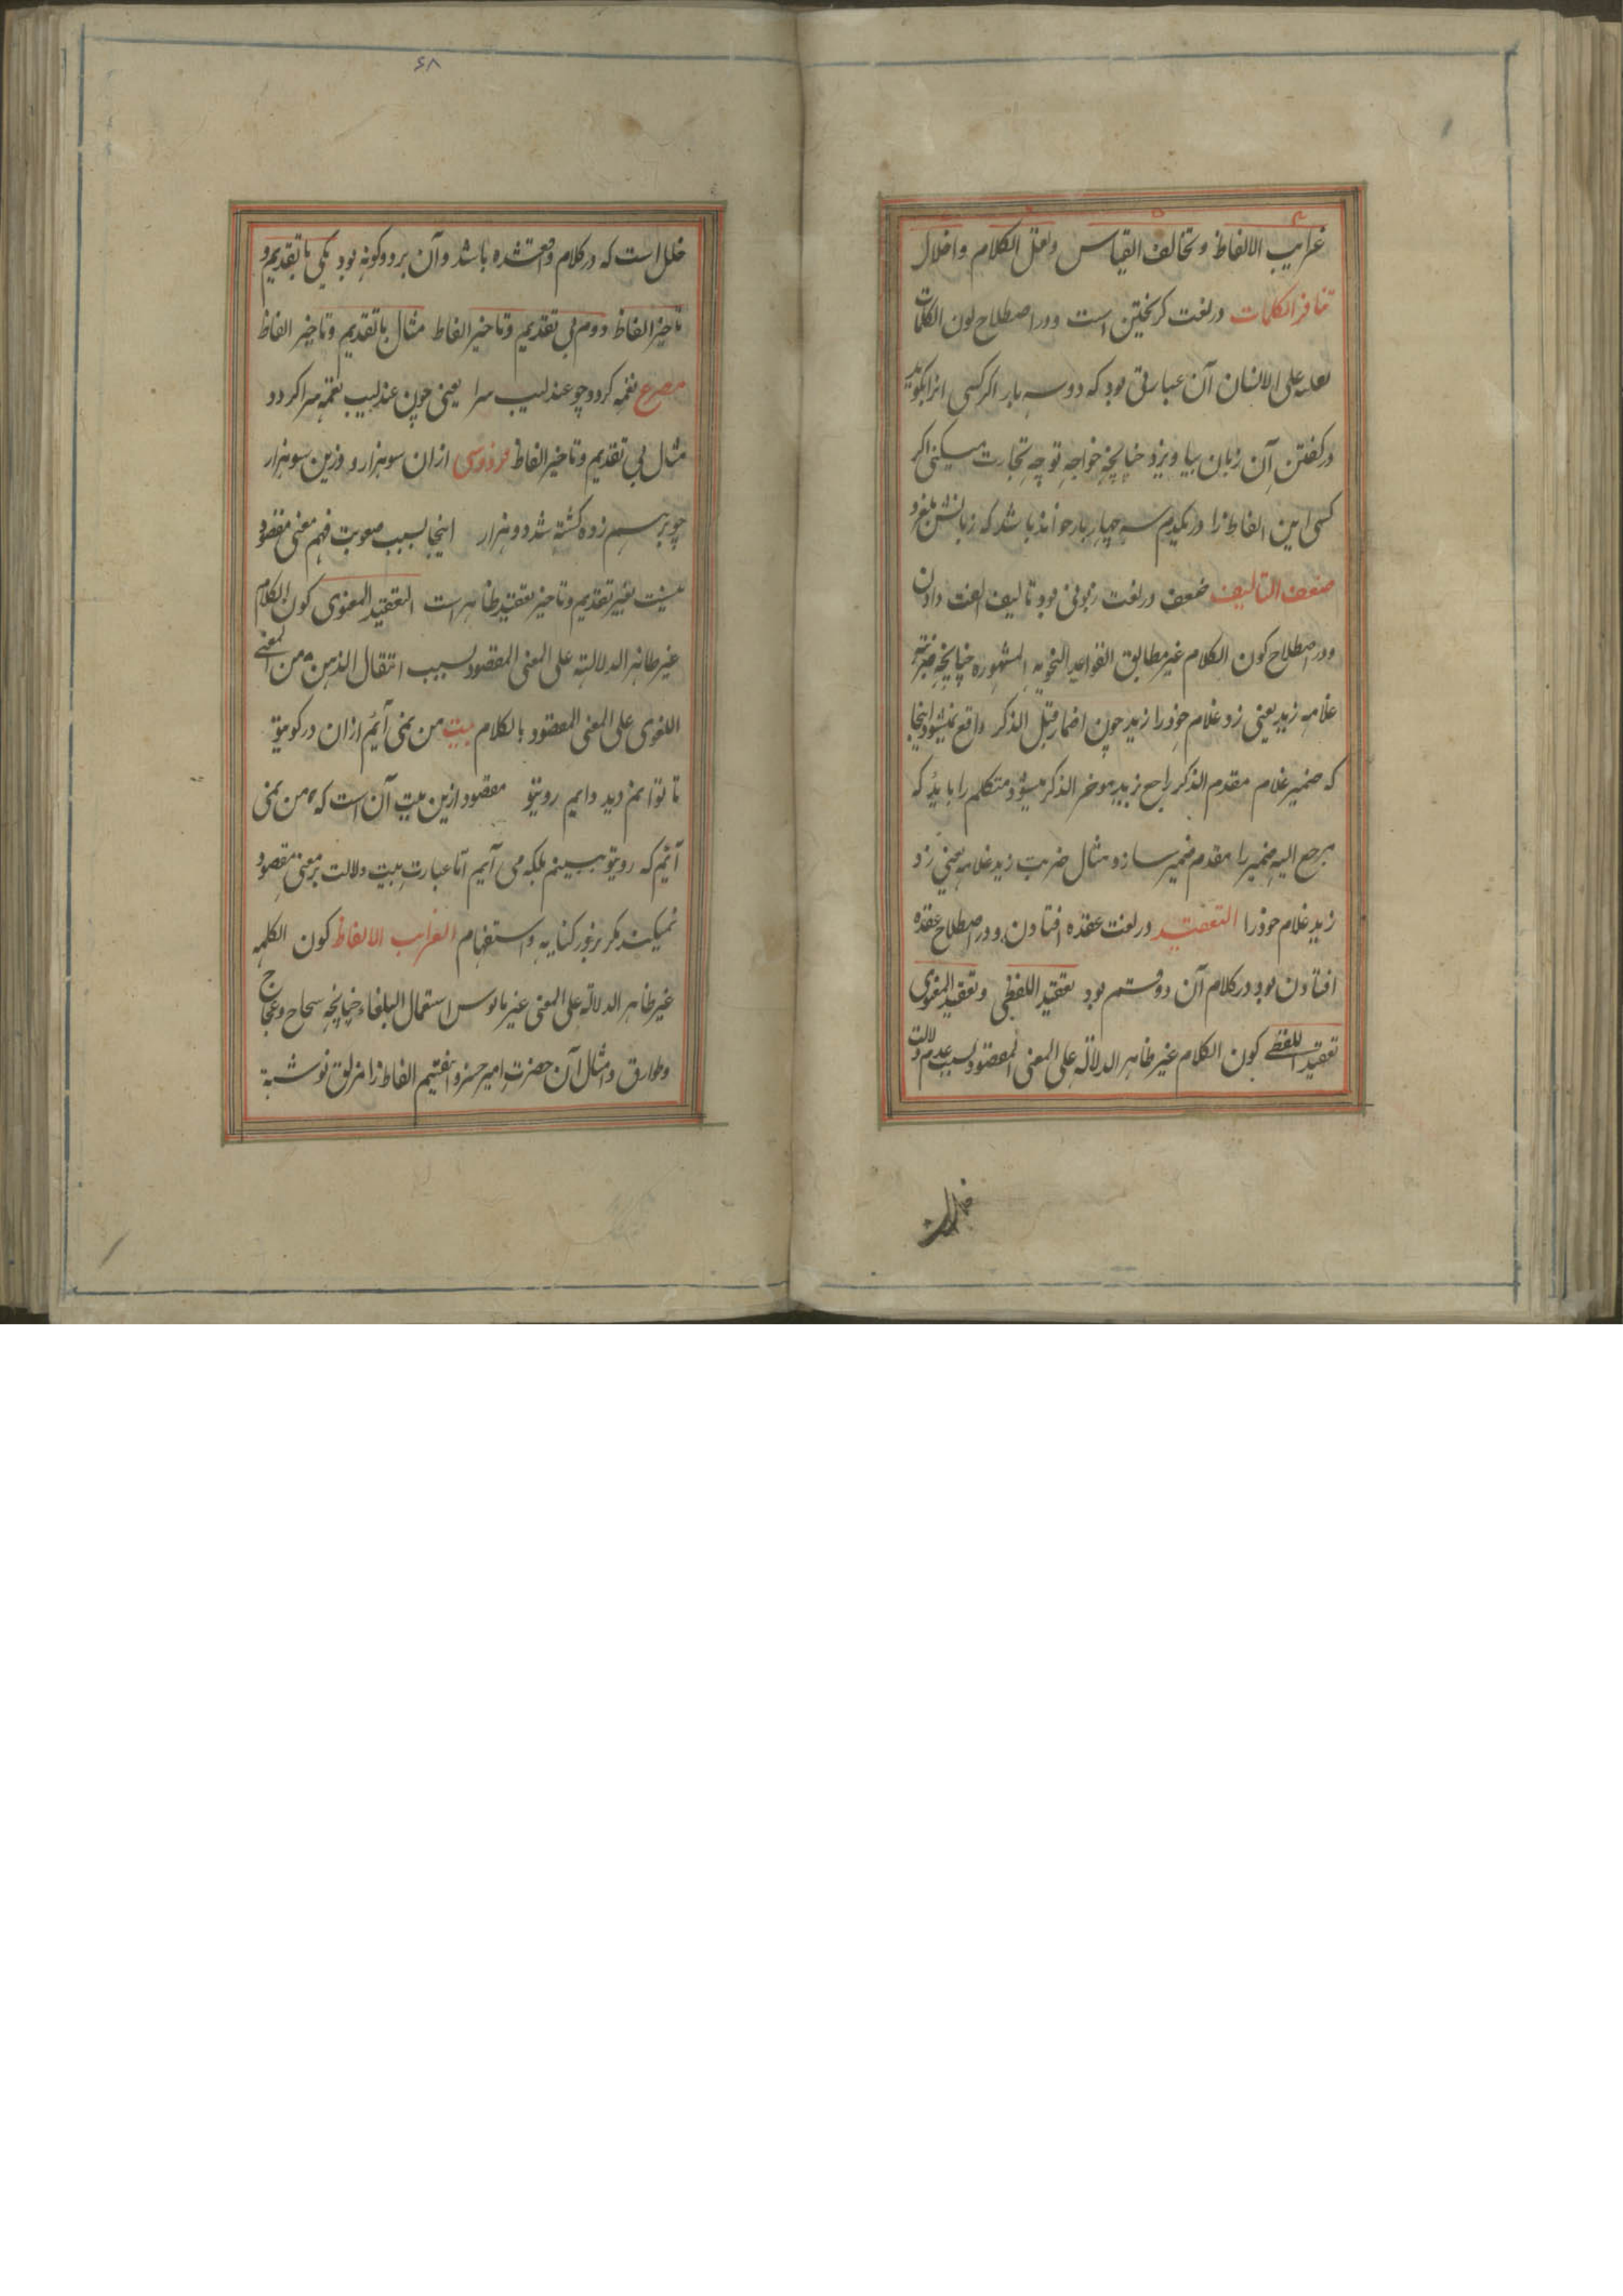 غرایب الالفاظ و تخالف القیاس و نقل الکلام و اخلال
تنافر الکلمات در لغت کریختن است و در اصطلاح کون الکلمات
ثقیلة علی الانسان آن عبارتی بود که دو سه بار اگر کسی انرا بکوید
در کفتن آن زبان بیاویزد چنانچه خواجه تو چه تجارت میکنی اگر
کسی این الفاظ را در یکدم سه چهار بار خواند باشد که زبانش بلغزد
ضعف التالیف ضعف در لغت زبونی بود تالیف الفت دادن
و در اصطلاح کون الکلام غیر مطابق القواعد النحویه المشهوره چنانچه ضرب
غلامه زید یعنی زد غلام خود را زید چون اضمار قبل الذکر واقع میشود اینجا
که ضمیر غلام مقدم الذکر راجع بزید موخر الذکر میشود متکلم را باید که
مرجع الیه ضمیر را مقدم ضمیر سازد مثال ضرب زید غلامه یعنی زد
زید غلام خود را التعقید در لغت عقده افتادن و در اصطلاح عقده
افتادن بود در کلام آن دو قسم بود تعقید اللفظی و تعقید المعنوی
تعقید اللفظی کون الکلام غیر ظاهر الدلالة علی المعنی المقصود بسبب عدم دلالت
۶۸
خلل است که در کلام واقع شده باشد و آن بر دو کونه بود یکی با تقدیم و
تاخیر الفاظ دوم بی تقدیم و تاخیر الفاظ مثال با تقدیم و تاخیر الفاظ
مصرع نغمه کردد چو عندلیب سرا یعنی چون عندلیب نغمه سرا کردد
مثال بی تقدیم و تاخیر الفاظ فردوسی ازان سو هزار و وزین سو هزار
چو بر هم زده کشته شد دو هزار اینجا بسبب صعوبت فهم معنی مقصود
بیت بغیر تقدیم و تاخیر تعقید ظاهر است التعقید المعنوی کون الکلام
غیر ظاهر الدلالته علی المعنی المقصود بسبب انتقال الذهن من المعنی
اللغوی علی المعنی المقصود بالکلام بیت من نمی آیم ازان در کوی تو
تا توانم دید دایم روی تو مقصود ازین بیت آن است که من نمی
آیم که روی تو ببینم بلکه می آیم اما عبارت بیت دلالت بر معنی مقصود
نمیکند مکر بزور کنایه و استفهام الغرایب الالفاظ کون الکلمه
غیر ظاهر الدلالة علی المعنی غیر مانوس استعمال البلغاء چنانچه سحاح و عجاج
و طوارق و امثال آن حضرت امیر خسرو